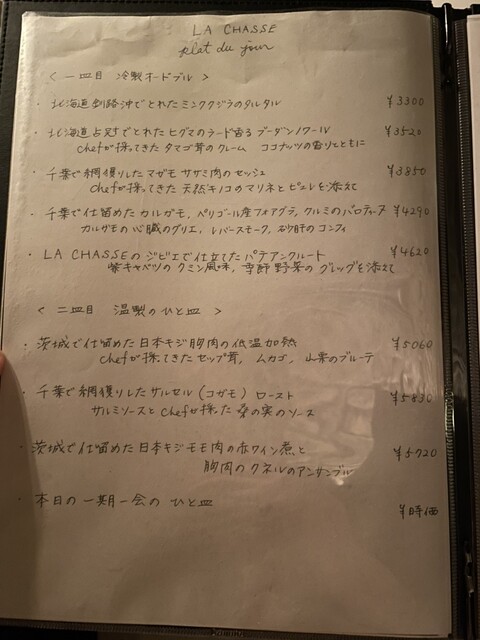 LA CHASSE
plat du jour
< 一皿目 冷製オードブル >
・北海道釧路沖でとれたミンククジラのタルタル ¥3300
・北海道占冠でとれたヒグマのラード香る ブーダンノワール ¥3520
chefが採ってきた タマゴ茸のクレーム ココナッツの香りとともに
・千葉で網獲りしたマガモ ササミ肉のセッシュ ¥3850
chefが採ってきた 天然キノコのマリネとピュレを添えて
・千葉で仕留めた カルガモ、ペリゴール産フォアグラ、クルミのバロティーヌ ¥4290
カルガモの心臓のグリエ、レバースモーク、砂肝のコンフィ
・LA CHASSEのジビエで仕立てたパテアンクルート ¥4620
紫キャベツのクミン風味、季節野菜のグレッグを添えて
< 二皿目 温製のひと皿 >
・茨城で仕留めた日本キジ胸肉の低温加熱 ¥5060
chefが採ってきたセップ茸、ムカゴ、山栗のブルーテ
・千葉で網獲りしたサルセル(コガモ) ロースト ¥5830
サルミソースとchefが採った桑の実のソース
・茨城で仕留めた日本キジモモ肉の赤ワイン煮と ¥5720
胸肉のクネルのアンサンブル
・本日の一期一会の ひと皿 ¥時価